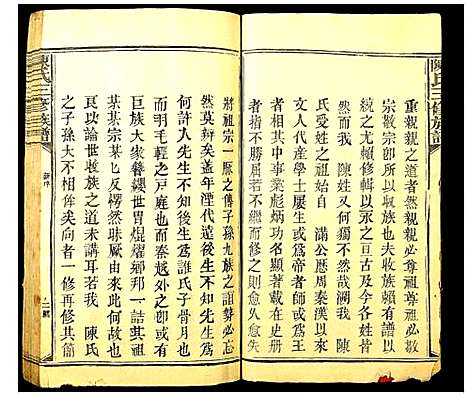 陳氏三修族譜
重親親之道者然親親必尊祖尊祖必敬
宗敬宗卽所以收族也夫收族賴有譜以
統之尤賴修輯以承之亘古及今各姓皆
然而我 陳姓又何獨不然哉溯我 陳
氏受姓之祖始自 滿公應周秦漢以來
文人代產學士屢生或爲帝者師或爲王
者相其中事業彪炳功名顯著載在史册
者指不勝屈若不繼而修之則愈久愈失
將祖宗一脈之傳子孫九族之誼勢必忘
然莫辨矣蓋年湮代遠後生不知先生爲
何許人先生不知後生爲誰氏子骨月也
而明毛輕之戶庭也而秦越外之卽或有
巨族大家簪纓世胄焜燿鄉邦一詰其祖
某某宗某匕反懵然昧厥由來此何故也
良以論世收族之道未講耳若我 陳氏
之子孫大不相侔矣向者一修再修其簡
陳氏三修族譜
新序
二